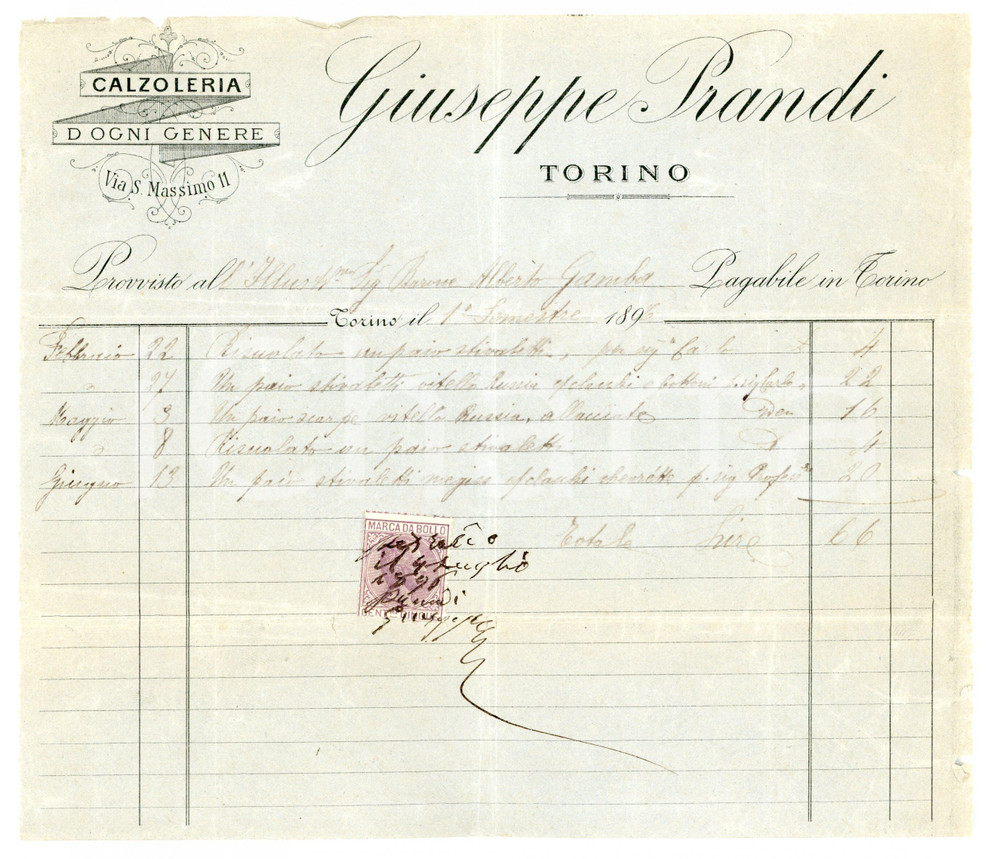 CALZOLERIA
D'OGNI GENERE
Via S. Massimo 11
Giuseppe Prandi
TORINO
Provvisto all'Illustr.mo Sig Barone Alberto Gamba Pagabile in Torino
Torino il 1° Semestre 1896
Febbraio 22 Risuolato un paio stivaletti, per sig Carlo 4
" 27 Un paio stivaletti vitello Russia bottoni 22
Maggio 3 Un paio scarpe vitello Russia, allacciate 16
" 8 Risuolato un paio stivaletti 4
Giugno 13 Un paio stivaletti p. sig 20
Totale Lire 66
MARCA DA BOLLO
il Luglio
1896
Prandi
Giuseppe